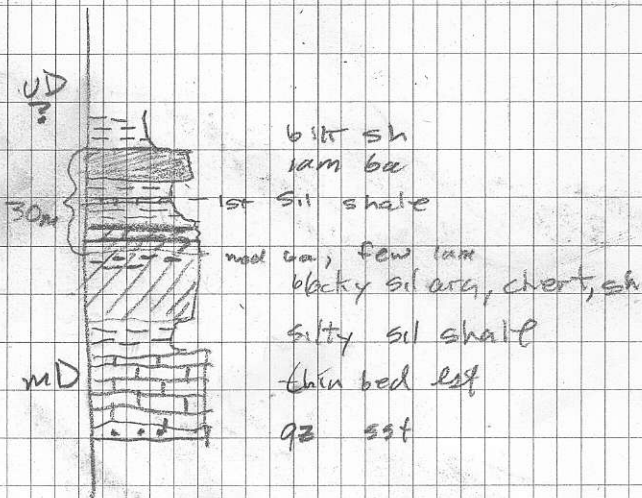 UD
?
blk sh
lam ba
30m
lst sil shale
nod ba, few lam
blocky sil arg, chert, sh
silty sil shale
mD
thin bed lst
qz sst